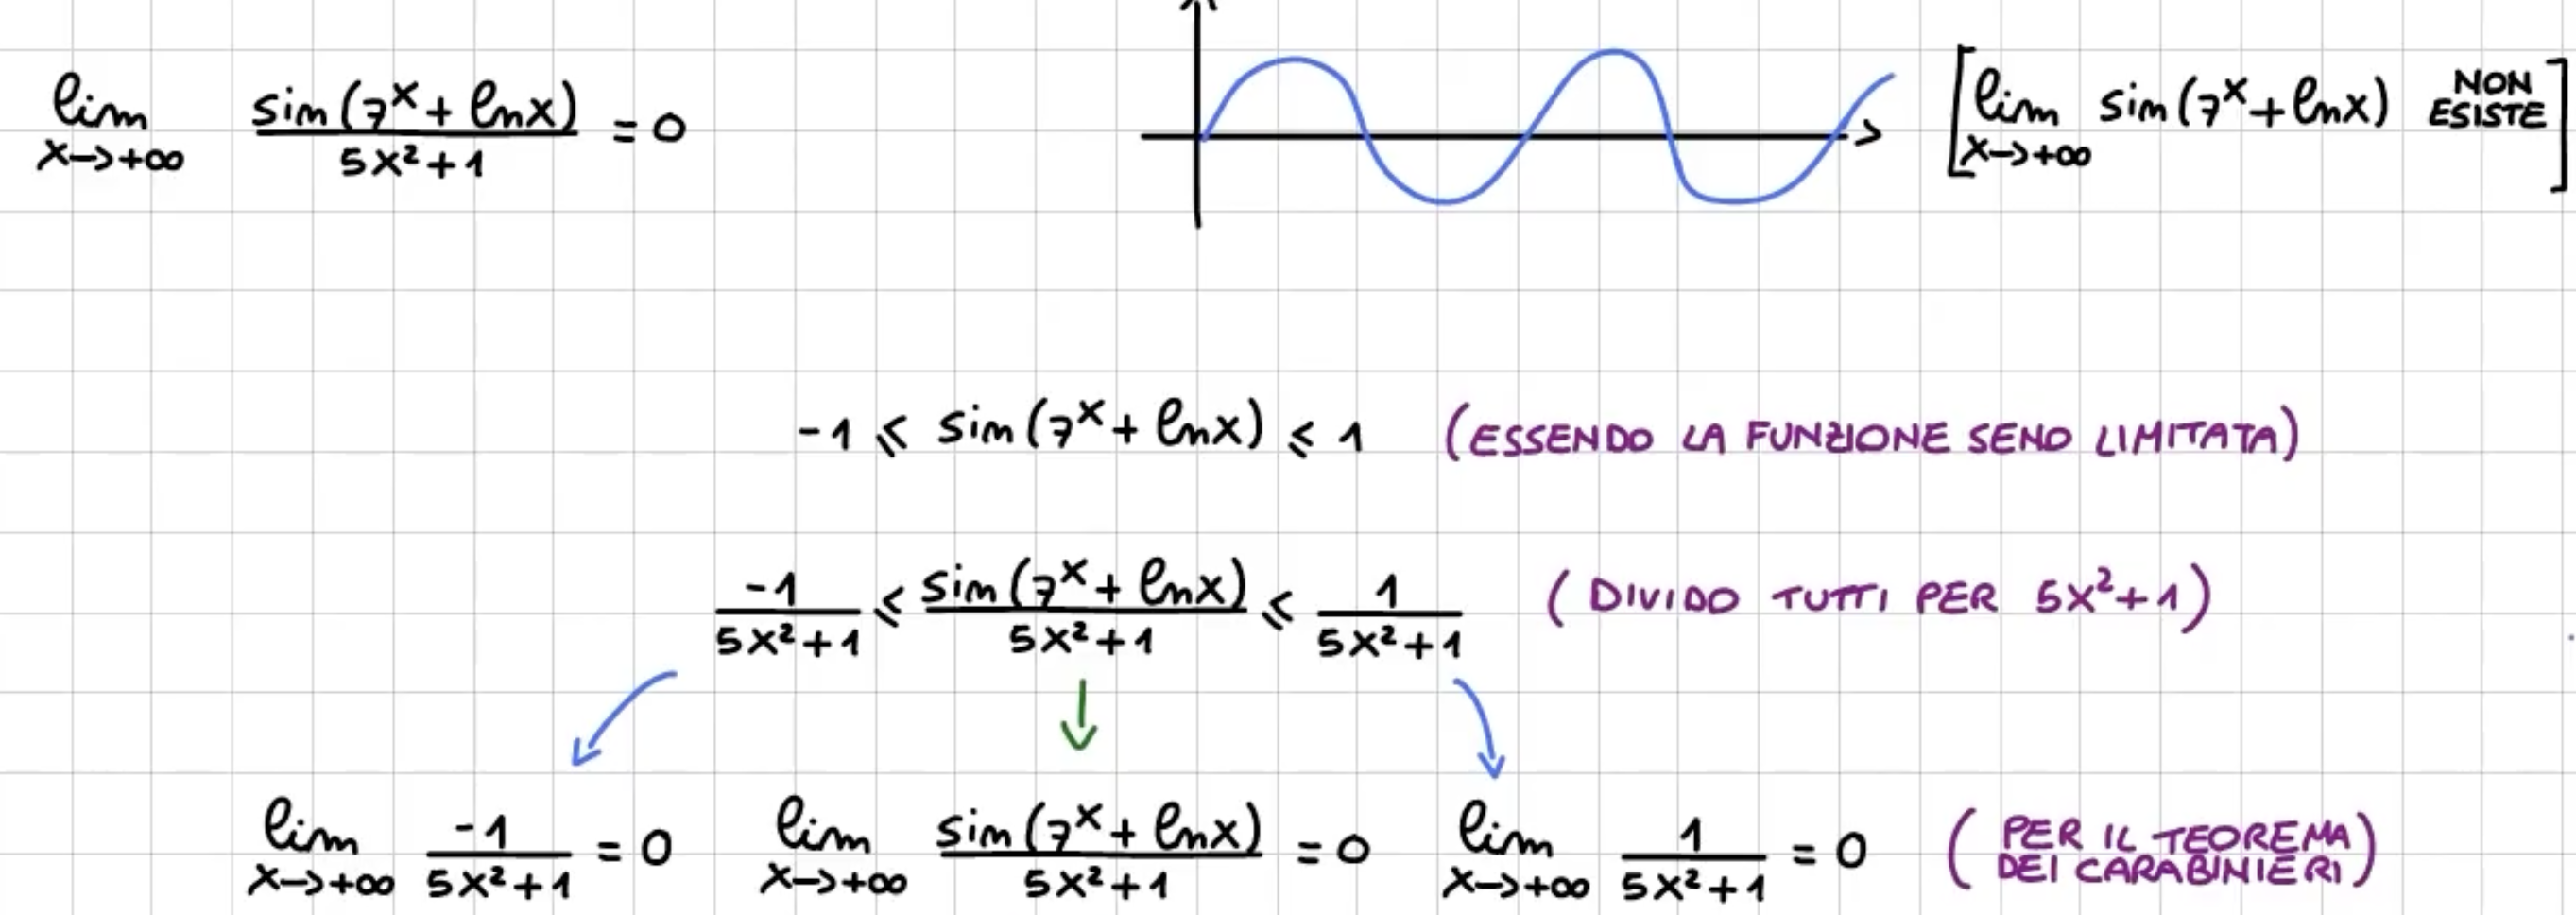 lim x→+∞ sin(7^x + ln x) / (5x² + 1) = 0
[lim x→+∞ sin(7^x + ln x) NON ESISTE]
-1 ≤ sin(7^x + ln x) ≤ 1 (ESSENDO LA FUNZIONE SENO LIMITATA)
-1 / (5x² + 1) ≤ sin(7^x + ln x) / (5x² + 1) ≤ 1 / (5x² + 1) (DIVIDO TUTTI PER 5x² + 1)
lim x→+∞ -1 / (5x² + 1) = 0 lim x→+∞ sin(7^x + ln x) / (5x² + 1) = 0 lim x→+∞ 1 / (5x² + 1) = 0 (PER IL TEOREMA DEI CARABINIERI)